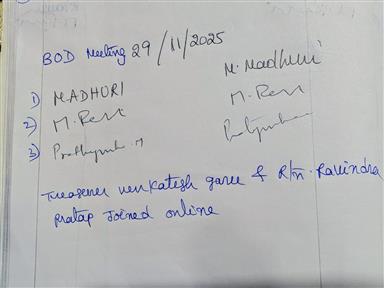 BOD Meeting 29/11/2025
1) MADHURI M. Madhuri
2) M. Ravi M. Ravi
3) Prathyusha. M
Treasurer venkatesh garu & R/n. Ravindra
pratap Joined online